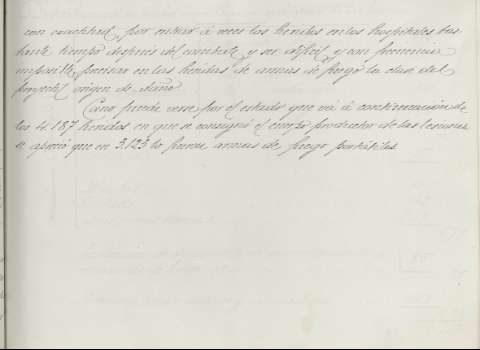 con exactitud, por entrar á veces los heridos en los hospitales bas-
tante tiempo después del combate y ser difícil y con frecuencia
imposible precisar en las heridas de armas de fuego la clase del
proyectil origen de daño.
Como puede verse por el estado que vá á continuación de
los 4.187 heridos en que se consignó el cuerpo productor de las lesiones
se apreció que en 3.123 lo fueron armas de fuego portátiles